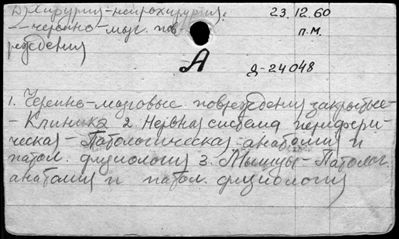 Д) Хирургия-нейрохирургия.
-черепно-мозг. пов-
реждения
23.12.60
п.м.
А
Д-24048
1. Черепно-мозговые повреждения закрытые-
-Клиника 2. Нервная система перифери-
ческая-Патологическая анатомия и
патол. физиология 3. Мышцы-Патолог.
анатомия и патол. физиология